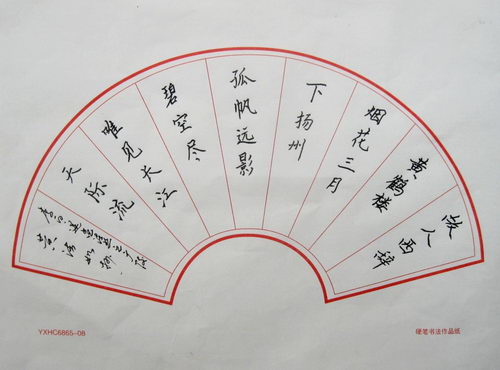 故人西辞
黄鹤楼
烟花三月
下扬州
孤帆远影
碧空尽
唯见长江
天际流
YXHC6865-08
硬笔书法作品纸